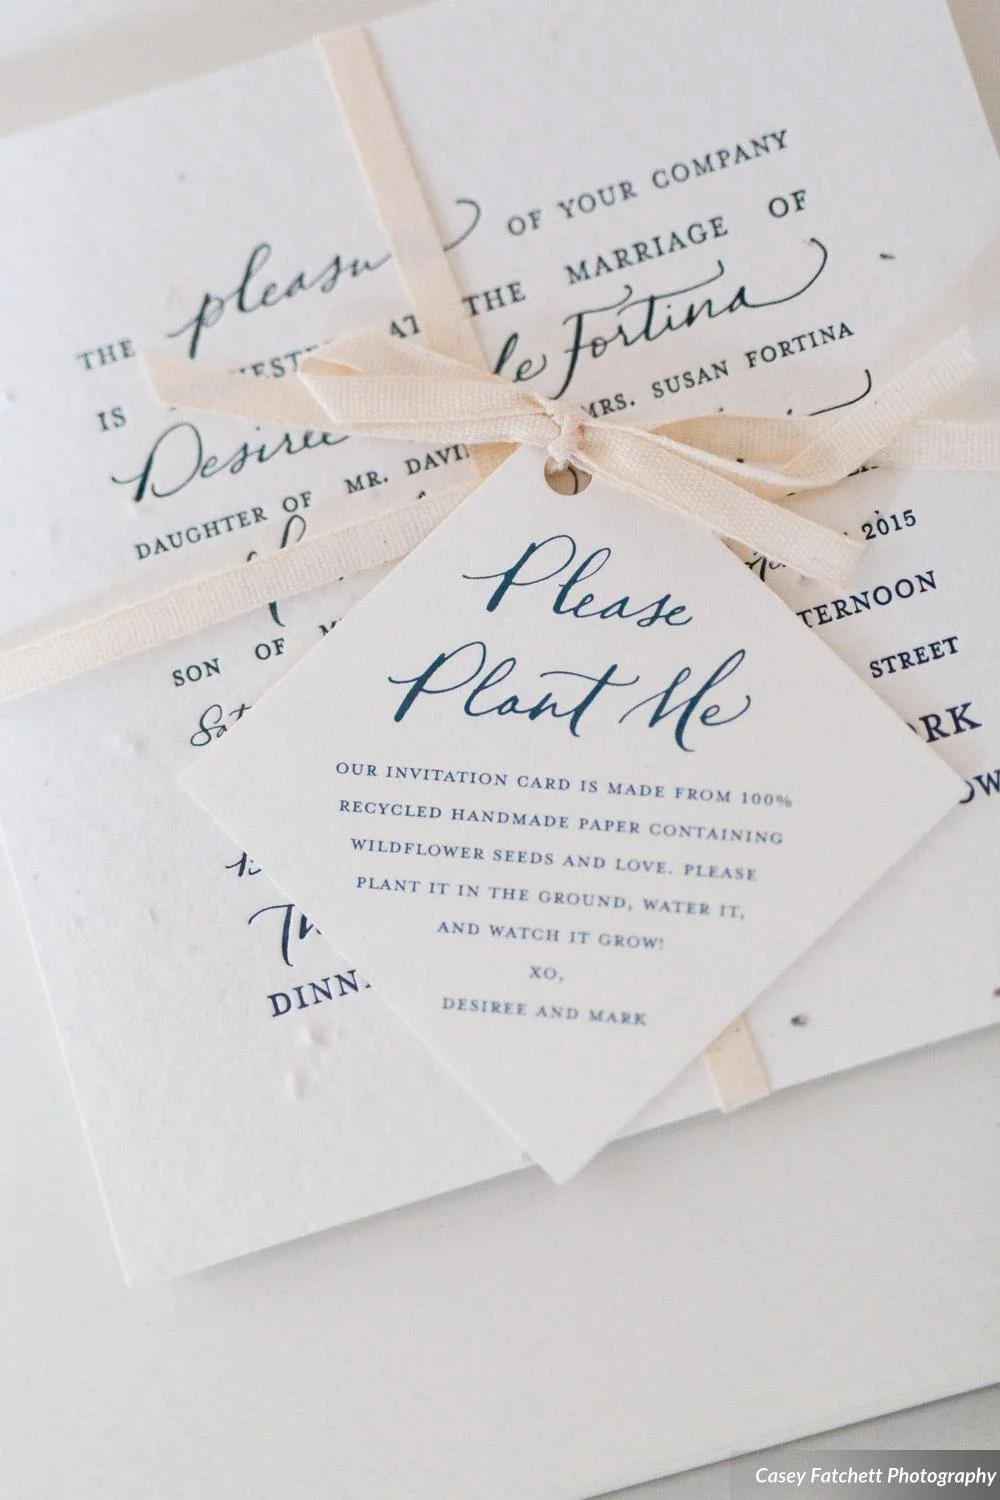 THE pleasu OF YOUR COMPANY
IS AT THE MARRIAGE OF
Desiree Fortina
DAUGHTER OF MR. DAVI MRS. SUSAN FORTINA
SON OF
2015
TERNOON
STREET
Please
Plant Me
OUR INVITATION CARD IS MADE FROM 100%
RECYCLED HANDMADE PAPER CONTAINING
WILDFLOWER SEEDS AND LOVE. PLEASE
PLANT IT IN THE GROUND, WATER IT,
AND WATCH IT GROW!
XO,
DESIREE AND MARK
Casey Fatchett Photography